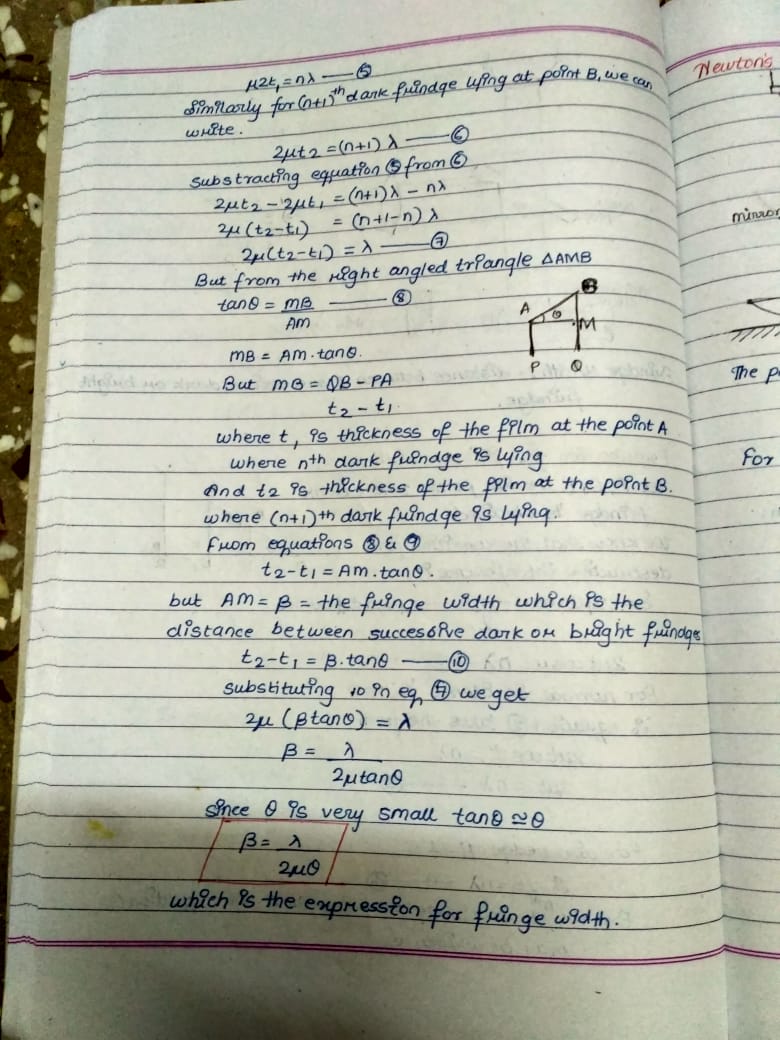 μ2t₁ = nλ —— ⑤
Similarly for (n+1)ᵗʰ dark frindge lying at point B, we can
write.
2μt₂ = (n+1) λ —— ⑥
substracting equation ⑤ from ⑥
2μt₂ - 2μt₁ = (n+1)λ - nλ
2μ(t₂-t₁) = (n+1-n) λ
2μ(t₂-t₁) = λ —— ⑦
But from the right angled triangle ΔAMB
tanθ = MB/AM —— ⑧
B
A
θ
M
P
Q
MB = AM.tanθ.
But MB = QB - PA
t₂ - t₁.
where t₁ is thickness of the film at the point A
where nth dark frindge is lying
And t₂ is thickness of the film at the point B.
where (n+1)th dark frindge is lying.
From equations ⑧ & ⑨
t₂-t₁ = AM.tanθ.
but AM = β = the fringe width which is the
distance between successive dark or bright frindges
t₂-t₁ = β.tanθ —— ⑩
substituting 10 in eq. ⑦ we get
2μ (βtanθ) = λ
β = λ/2μtanθ
since θ is very small tanθ ≃ θ
β = λ/2μθ
which is the expression for fringe width.
Newton's
mirror
The
For